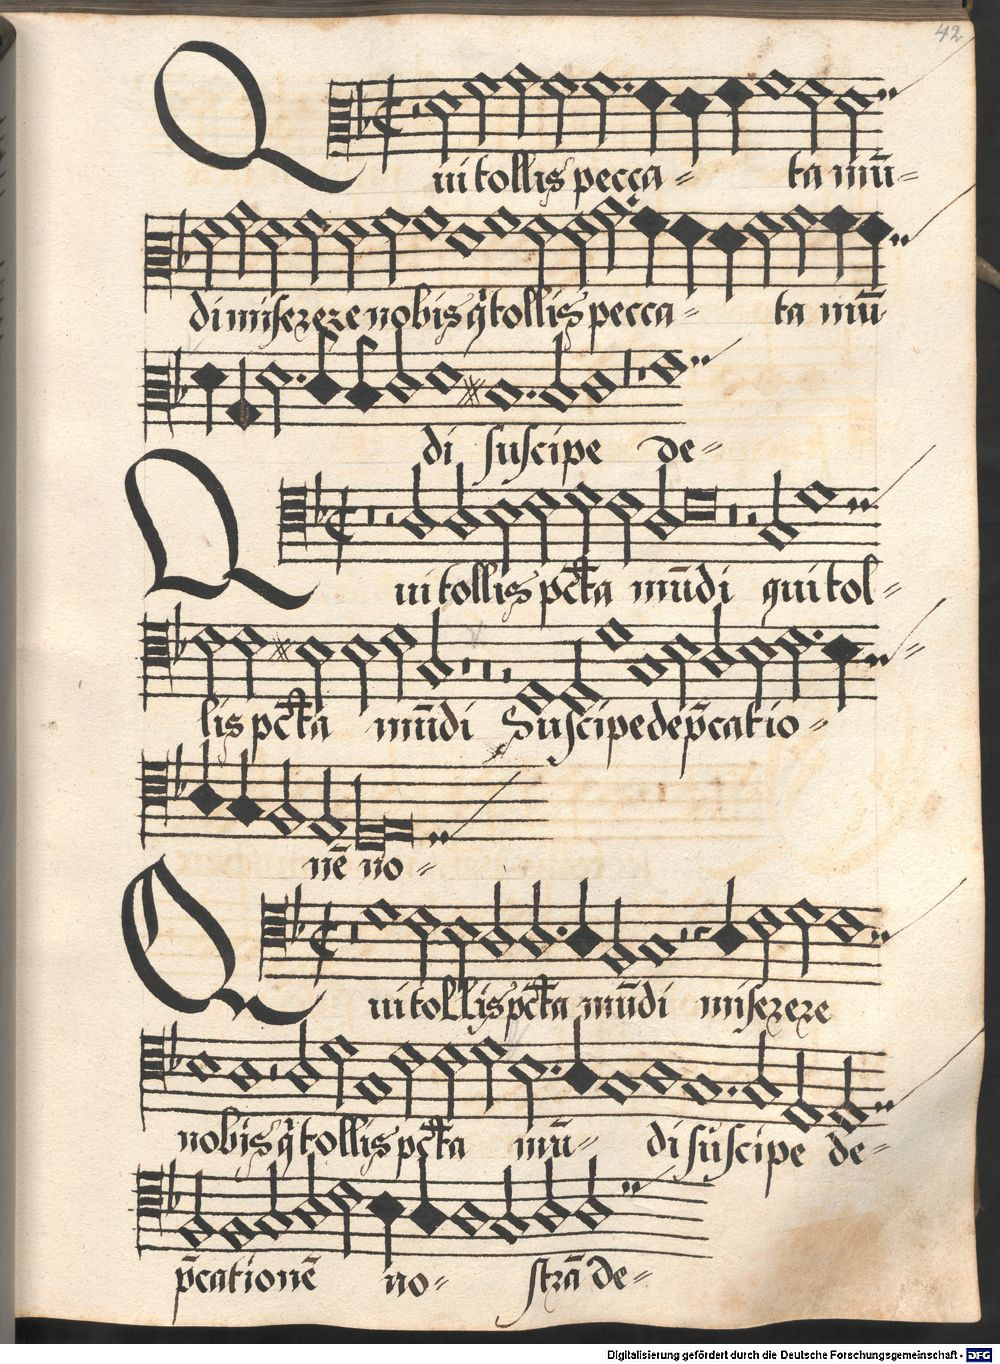 42
Qui tollis pecca= ta mū=
di miserere nobis q̇ tollis pecca= ta mū
di suscipe de=
Qui tollis pc̄ta mūdi qui tol=
lis pc̄ta mūdi Suscipe dep̄catio=
nē no=
Qui tollis pc̄ta mūdi miserere
nobis q̇ tollis pc̄ta mū= di suscipe de=
p̄cationē no= strā de=
Digitalisierung gefördert durch die Deutsche Forschungsgemeinschaft - DFG